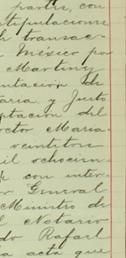 partes, con
estipulaciones
de transac-
México por
Martinez
entación de
aria y Justo
tación del
octor Maria-
veintitres
il ochocien-
con inter-
General
Ministro de
el Notario
do Rafael
a acta que